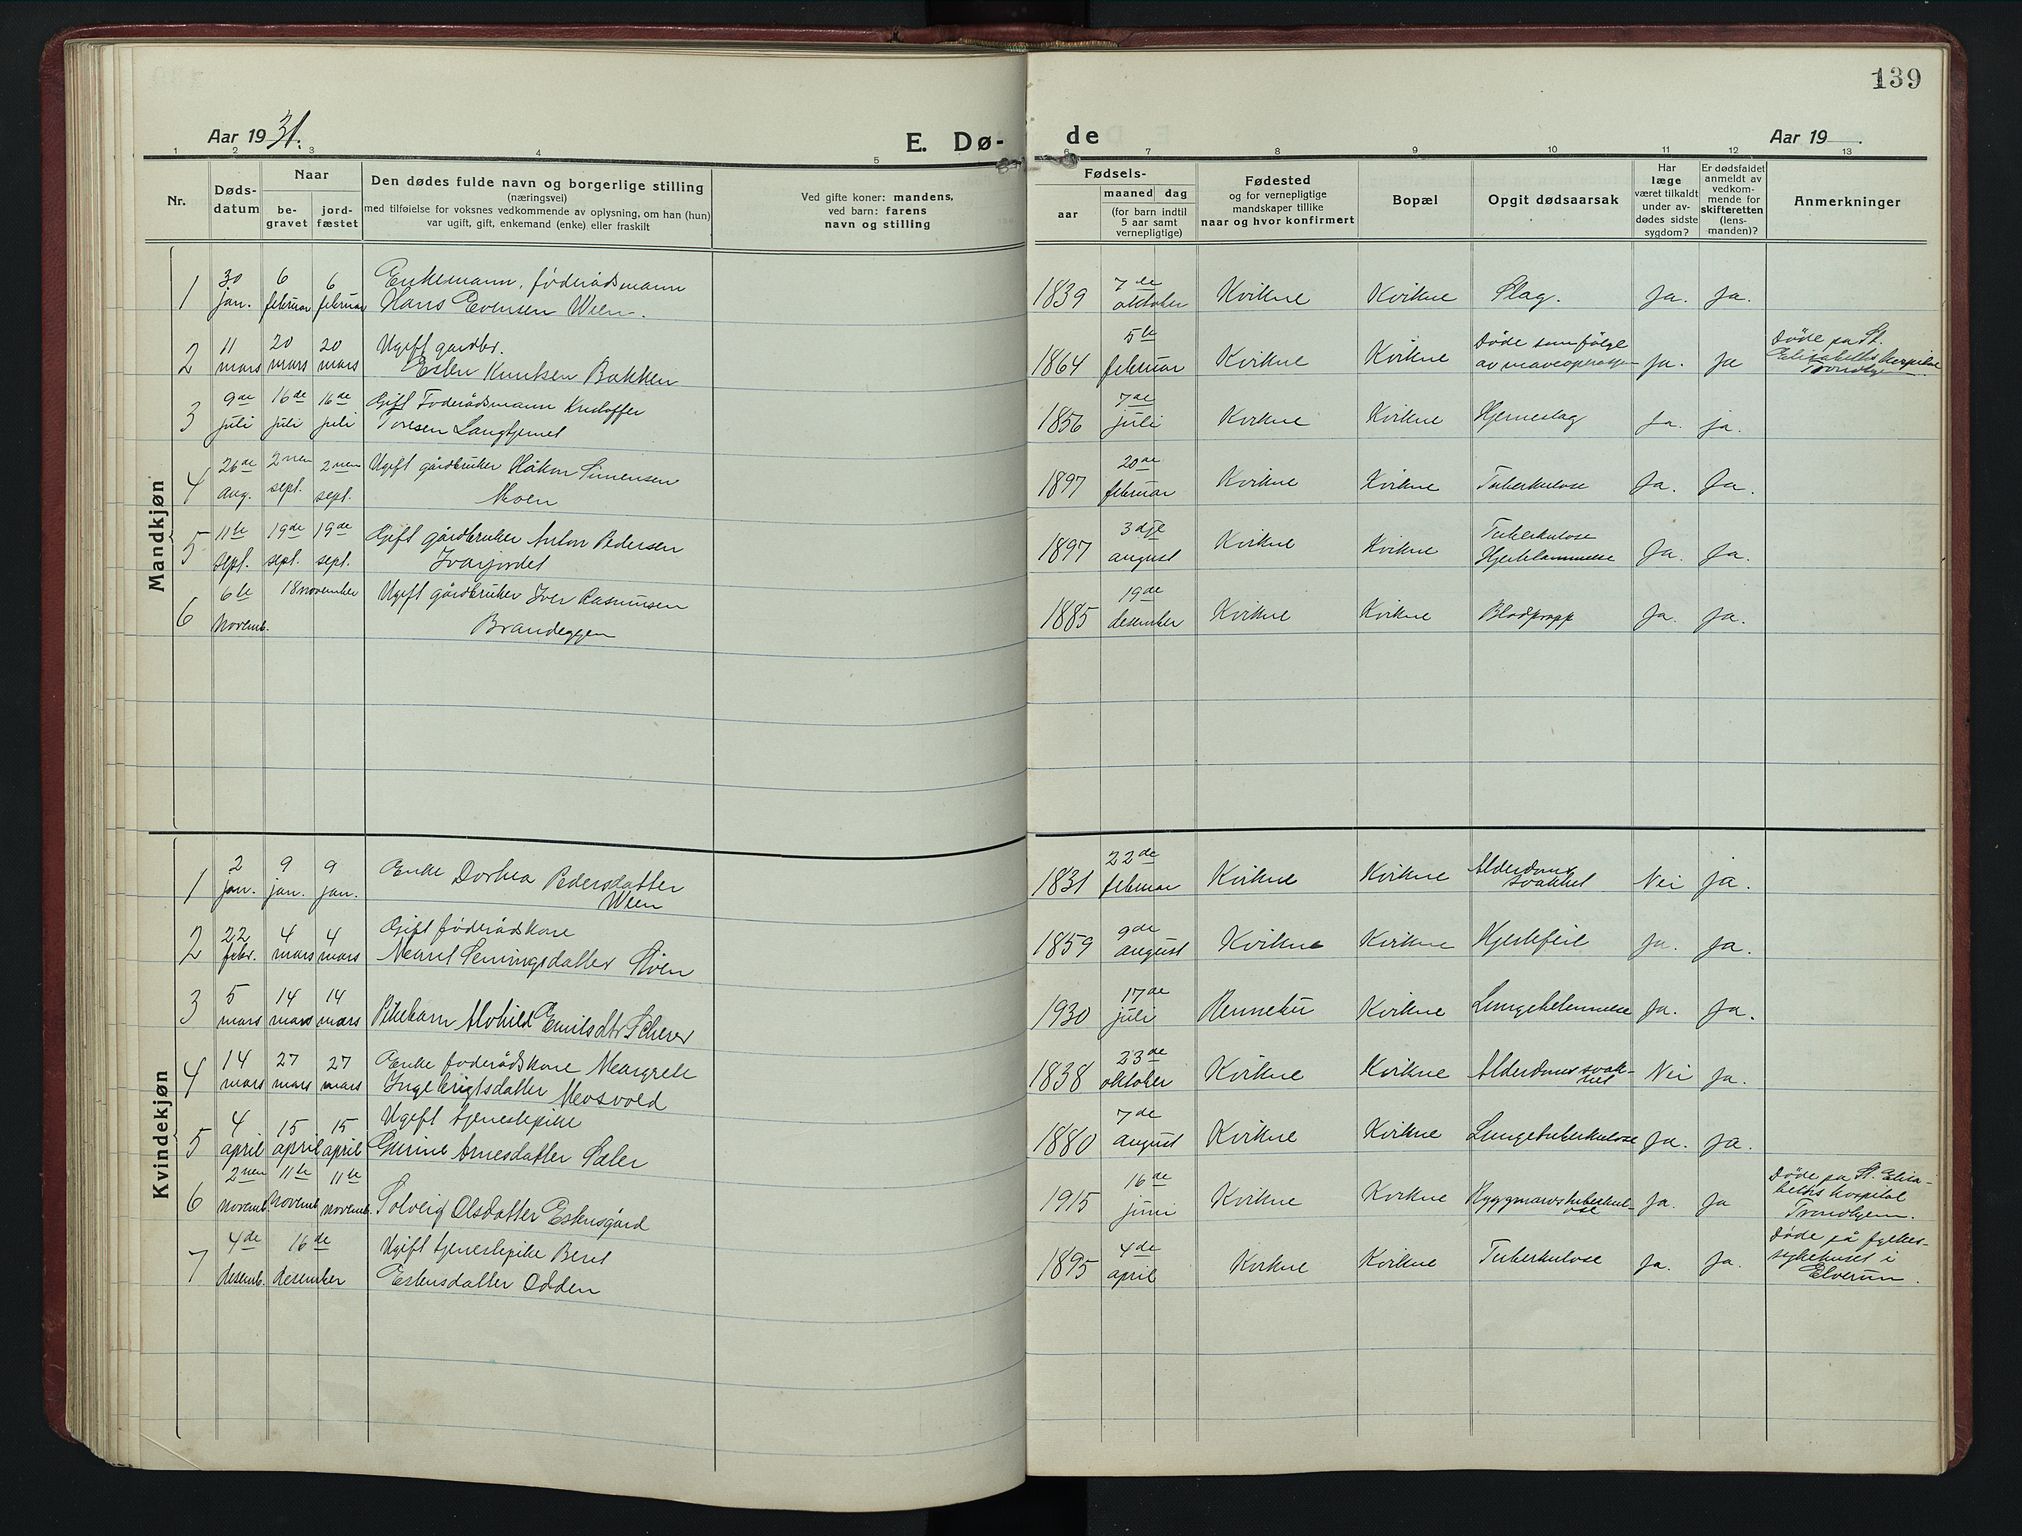 139
Aar 1931.
E. Dø-
de
Aar 19
1 2 3 4 5 6 7 8 9 10 11 12 13
Nr.
Døds-
datum
Naar
be-
gravet
jord-
fæstet
Den dødes fulde navn og borgerlige stilling
(næringsvei)
med tilføielse for voksnes vedkommende av oplysning, om han (hun)
var ugift, gift, enkemand (enke) eller fraskilt
Ved gifte koner: mandens,
ved barn: farens
navn og stilling
Fødsels-
aar
maaned dag
(for barn indtil
5 aar samt
vernepligtige)
Fødested
og for vernepligtige
mandskaper tillike
naar og hvor konfirmert
Bopæl
Opgit dødsaarsak
Har
læge
været tilkaldt
under av-
dødes sidste
sygdom?
Er dødsfaldet
anmeldt av
vedkom-
mende for
skifteretten
(lens-
manden)?
Anmerkninger
Mandkjøn
1 30 jan. 6 februar 6 februar Enkemann, føderådsmann
Hans Evensen Wien. 1839 7de oktober Kvikne Kvikne Slag. Ja. Ja.
2 11 mars 20 mars 20 mars Ugift gardbr.
Esten Knutsen Bakken 1864 5te februar Kvikne Kvikne Døde som følge
av maveoperasjon Ja. Ja Døde på St.
Elisabeths hospital
Trondhjem
3 9de juli 16de juli 16de juli Gift Føderådsmann Kristoffer
Toresen Langtjernet 1856 7de juli Kvikne Kvikne Hjerneslag Ja. ja.
4 26de aug. 2nen sept. 2nen sept. Ugift gårdbruker Håkon Simensen
Moen 1897 20de februar Kvikne Kvikne Tuberkulose Ja. Ja.
5 11te sept. 19de sept. 19de sept. Gift gårdbruker Anton Pedersen
Ivarjordet 1897 3dje august Kvikne Kvikne Tuberkulose
Hjertelammelse Ja. Ja.
6 6te novemb. 18 november Ugift gårdbruker Iver Rasmussen
Brandeggen 1885 19de desember Kvikne Kvikne Blodpropp Ja. Ja.
Kvindekjøn
1 2 jan. 9 jan. 9 jan. Enke Dorthea Pedersdatter
Wien 1831 22de februar Kvikne Kvikne Alderdoms
svakhet Nei ja.
2 22 febr. 4 mars 4 mars Gift føderådskone
Marit Semingsdatter Støen 1859 9de august Kvikne Kvikne Hjertefeil ja. Ja.
3 5 mars 14 mars 14 mars Pikebarn Alvhild Emilsdtr 1930 17de juli Rennebu Kvikne Lungebetennelse Ja. Ja.
4 14 mars 27 mars 27 mars Enke føderådskone Margrete
Ingebrigtsdatter Mosvold 1838 23de oktober Kvikne Kvikne Alderdomssvak-
het Nei Ja.
5 4 april 15 april 15 april Ugift tjenestepike
Gurine Arnesdatter Sæter 1880 7de august Kvikne Kvikne Lungetuberkulose Ja. Ja.
6 2nen novemb. 11te Novemb 11te novemb. Solveig Olsdatter Estensgård 1915 16de juni Kvikne Kvikne Ryggmarvstuberkul-
ose Ja. Ja Døde på St. Elisa-
beths hospital
Trondhjem.
7 4de desemb. 16de desember Ugift tjenestepike Berit
Estensdatter Odden 1895 4de april Kvikne Kvikne Tuberkulose Ja. Ja. Døde på fylkes-
sykehuset i
Elverum.